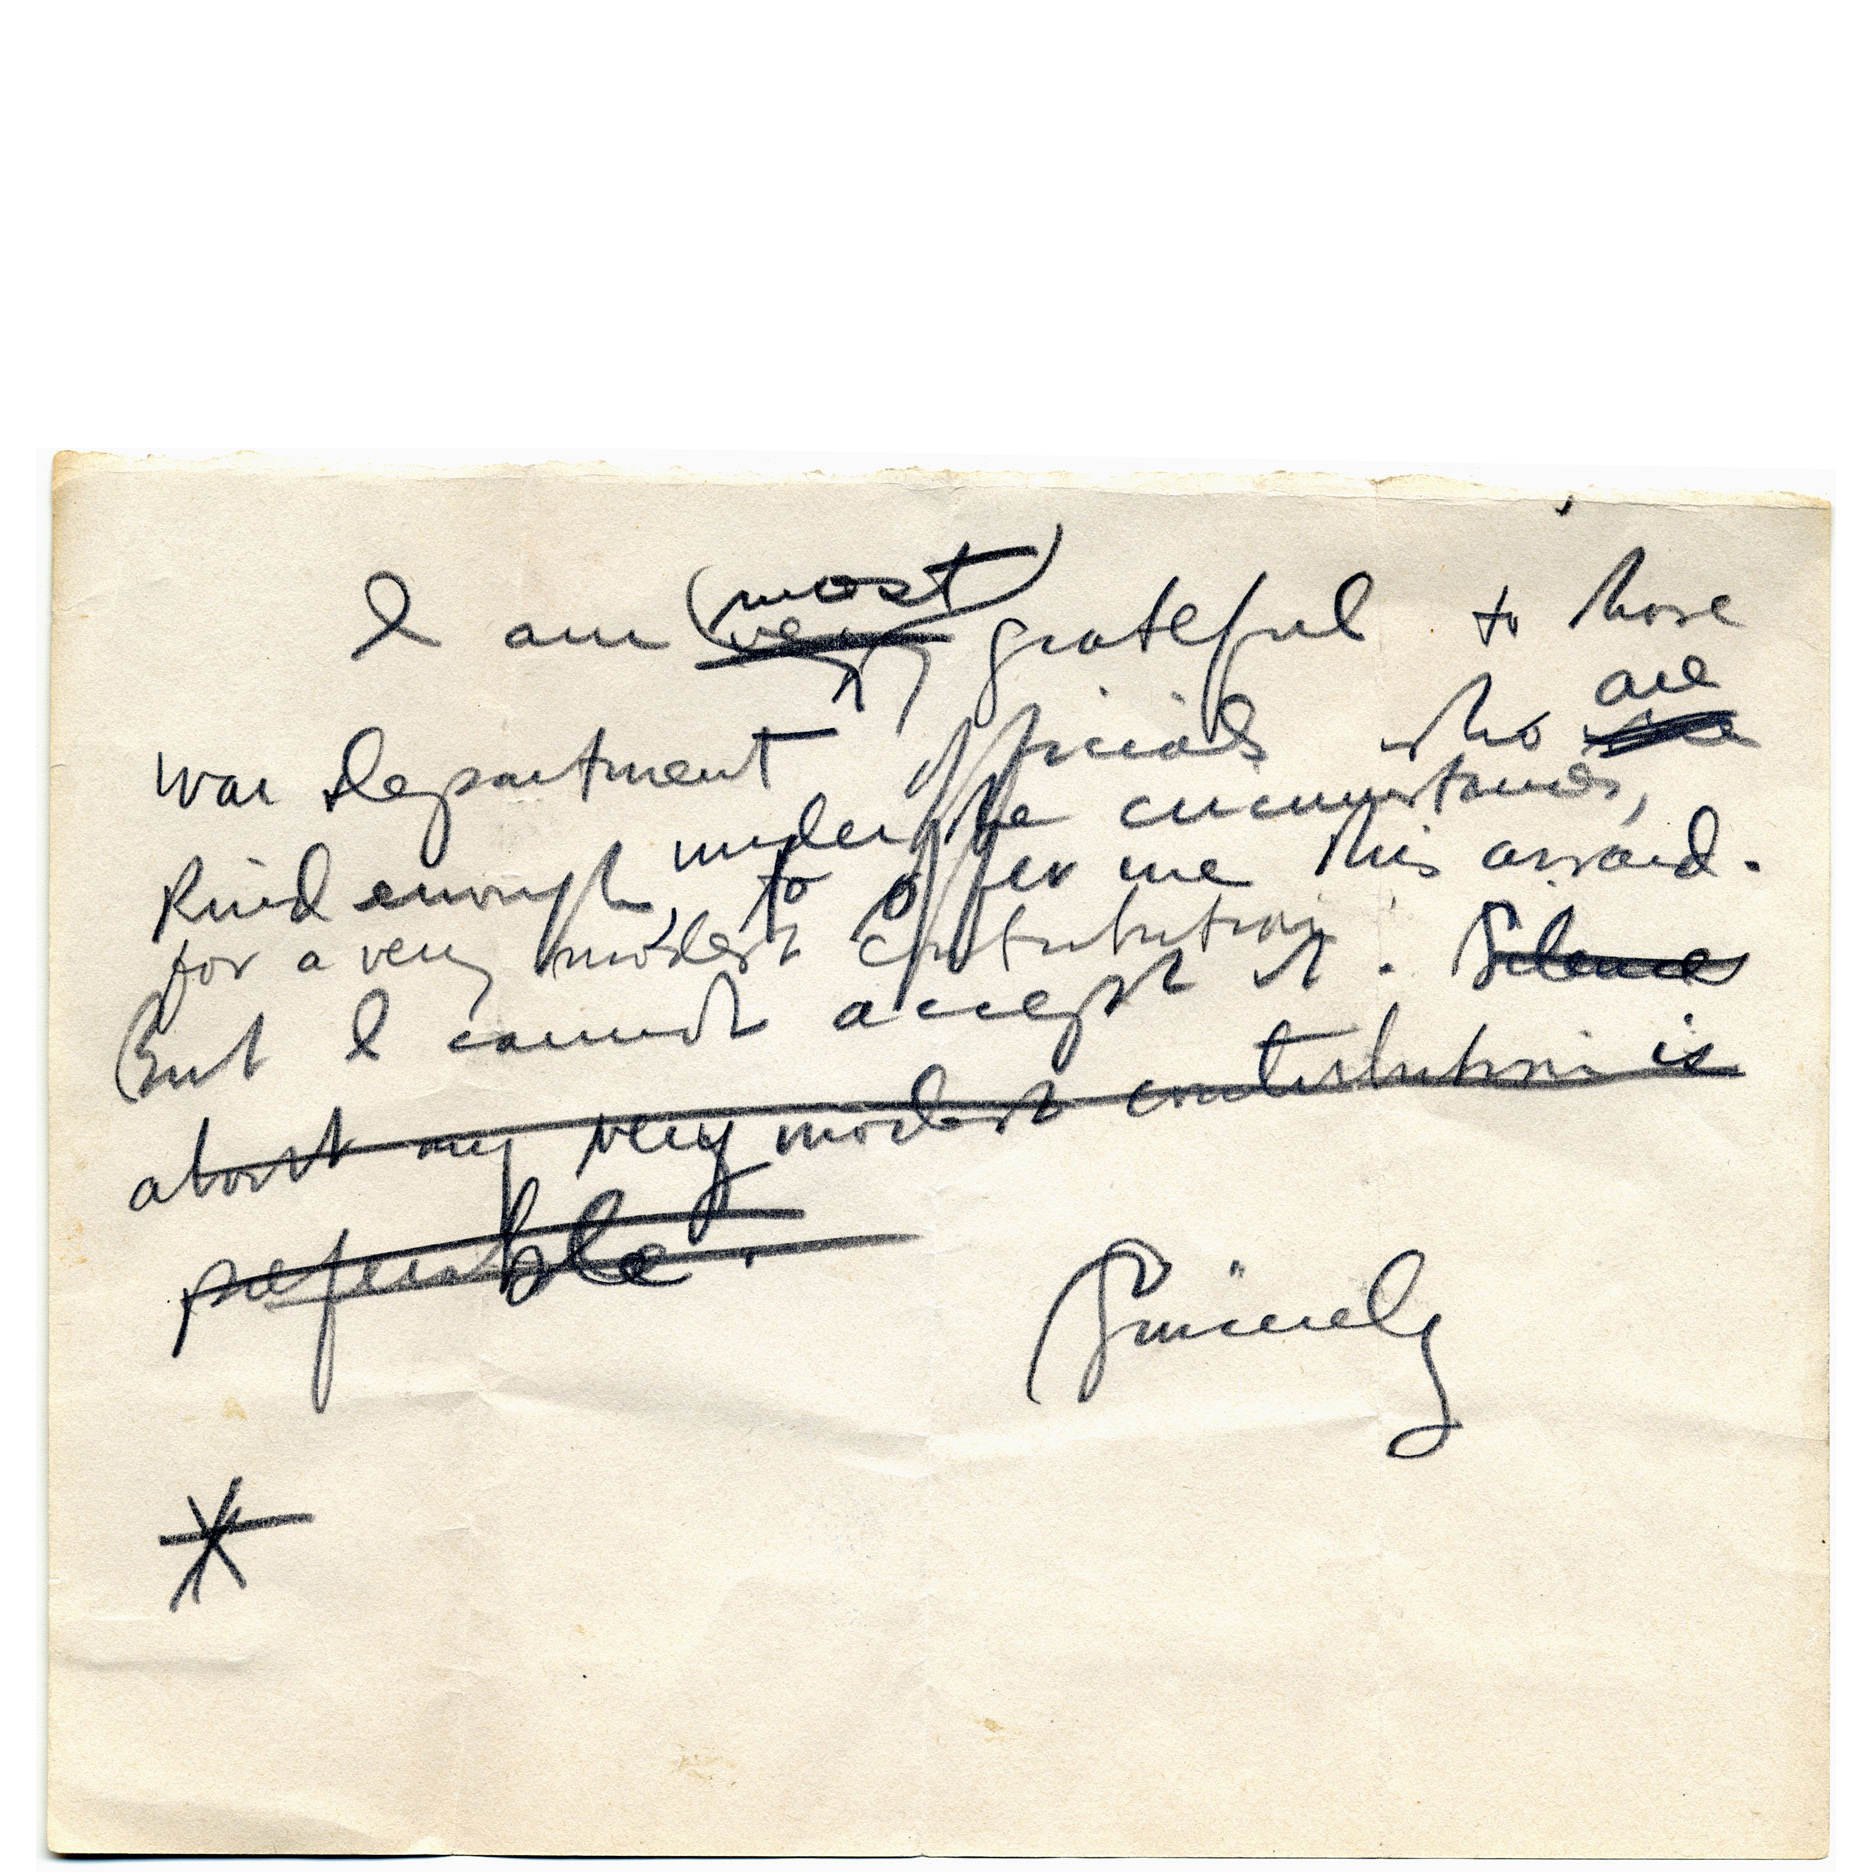 I am (most)
very grateful to those
are
War Department officials who
under the circumstances,
Kind enough, to offer me this award.
for a very modest contribution.
But I cannot accept it. Silence
about my very modest contribution is
preferable.
Sincerely
*